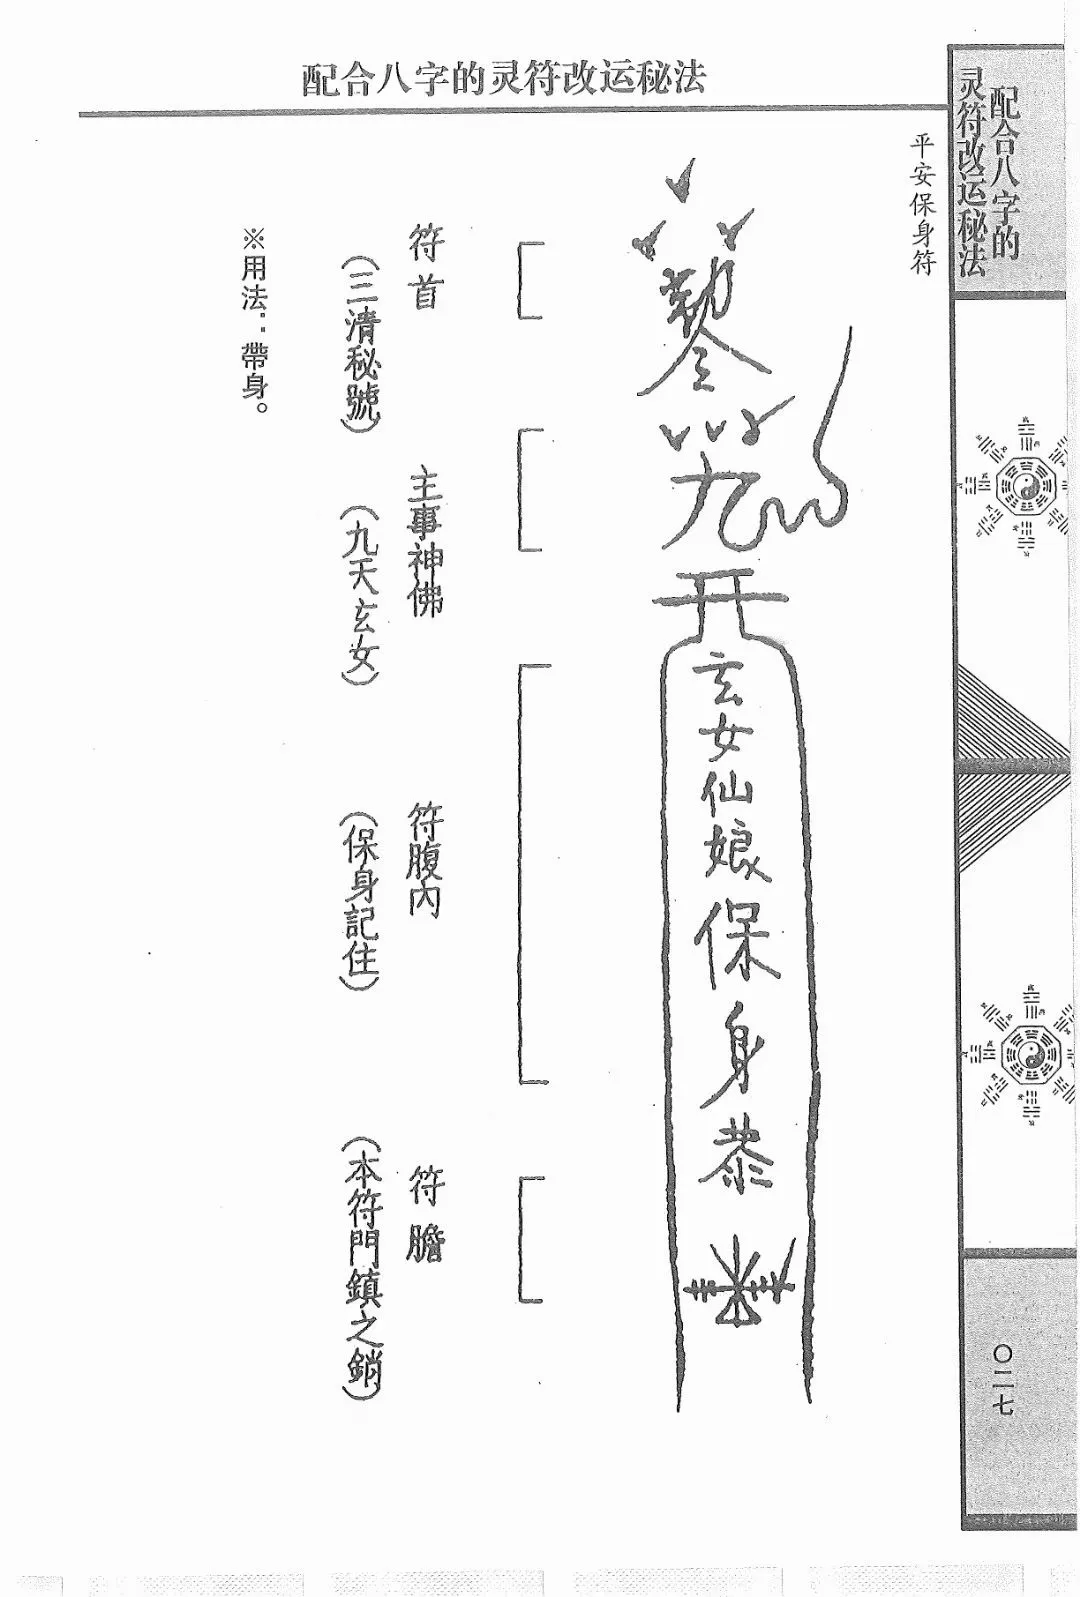 配合八字的灵符改运秘法
配合八字的
灵符改运秘法
平安保身符
九
玄女仙娘保身恭
符首
(三清秘號)
主事神佛
(九天玄女)
符腹內
(保身記住)
符膽
(本符門鎮之銷)
※用法：帶身。
〇二七